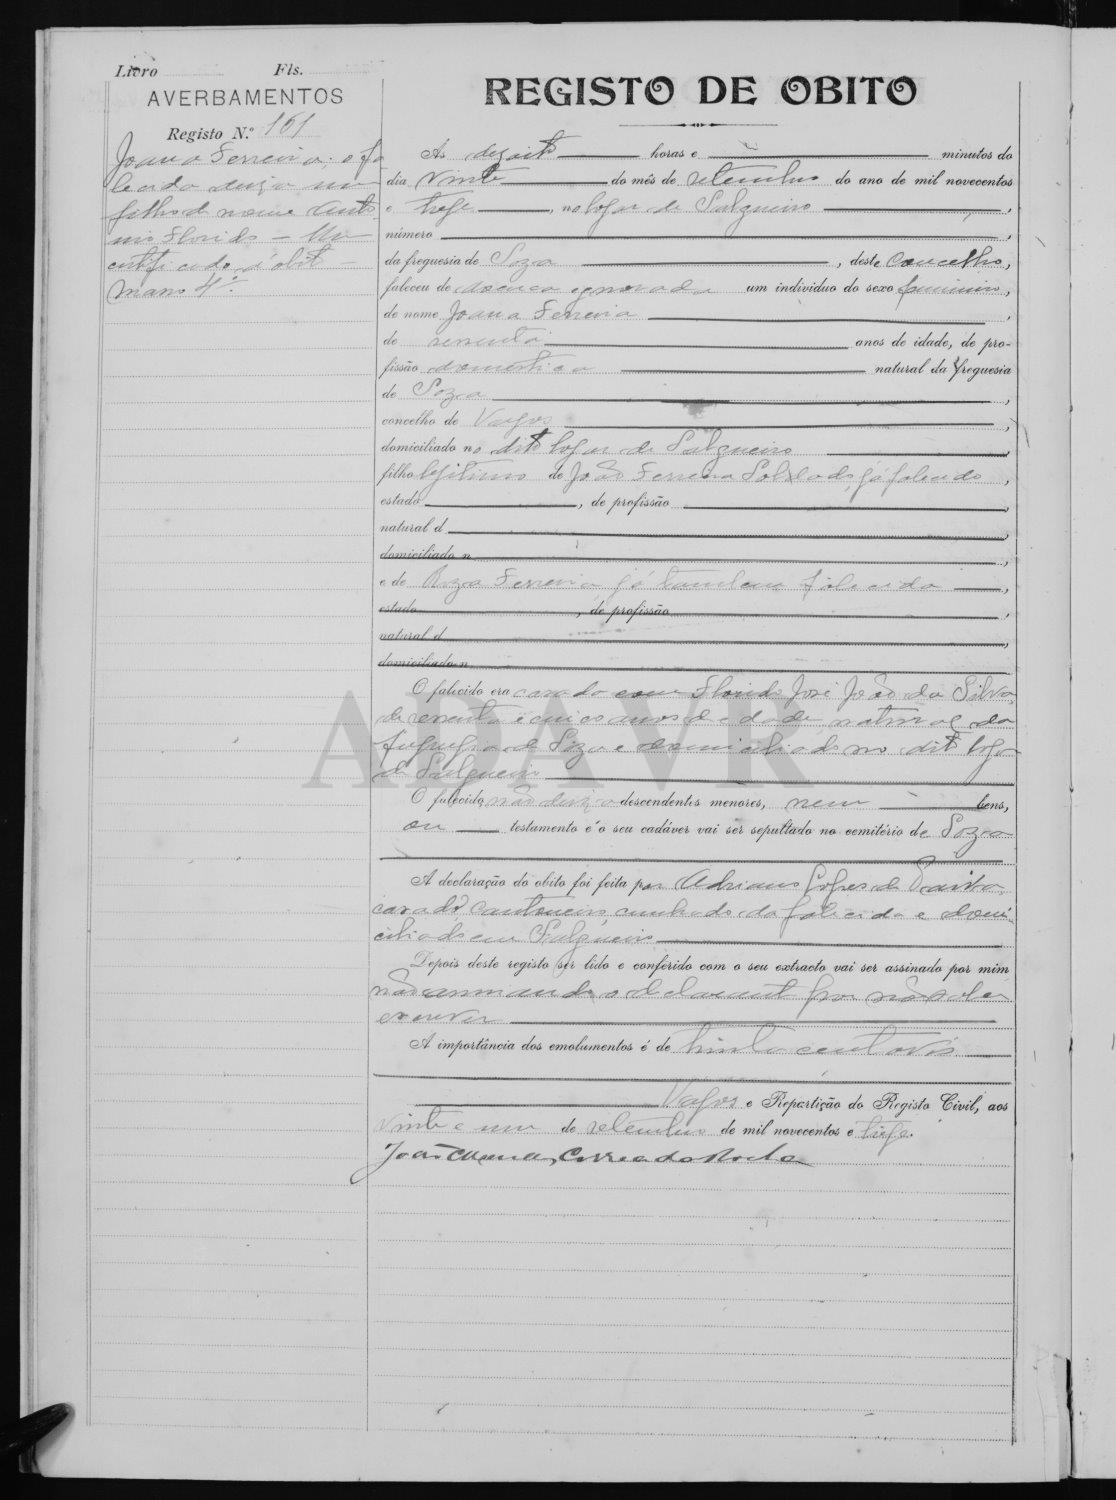 Livro Fls.
AVERBAMENTOS
Registo N.º 161
Joana Ferreira, a fa-
lecida deixa um
filho de nome Anto
nio Florido — Um
certificado d'obito —
Maço 4º.
REGISTO DE OBITO
Às dezoito horas e minutos do
dia vinte do mês de setembro do ano de mil novecentos
e treze, no logar de Salgueiro,
número ,
da freguesia de Soza, deste concelho,
faleceu de doença ignorada um individuo do sexo feminino,
de nome Joana Ferreira,
de sessenta anos de idade, de pro-
fissão domestica natural da freguesia
de Soza,
concelho de Vagos,
domiciliado no dito logar de Salgueiro,
filho legitimo de João Ferreira já falecido,
estado , de profissão ,
natural d ,
domiciliado n ,
e de Roza Ferreira já tambem falecida,
estado , de profissão ,
natural d ,
domiciliado n
O falecido era casada com Florido José João da Silva,
de sessenta e cinco anos de edade, natural da
freguesia de Soza e domiciliado no dito logar
de Salgueiro
O falecido não deixa descendentes menores, nem bens,
ou testamento e o seu cadáver vai ser sepultado no cemitério de Soza
A declaração do obito foi feita por Adriano Lopes de
casado, cantoneiro, cunhado da falecida e domi-
ciliado em Salgueiro
Depois deste registo ser lido e conferido com o seu extracto vai ser assinado por mim
não assinando o declarante por não saber
escrever
A importância dos emolumentos é de trinta centavos
Vagos e Repartição do Registo Civil, aos
vinte e um de setembro de mil novecentos e treze.
João Correa da Rocha
ADAVR